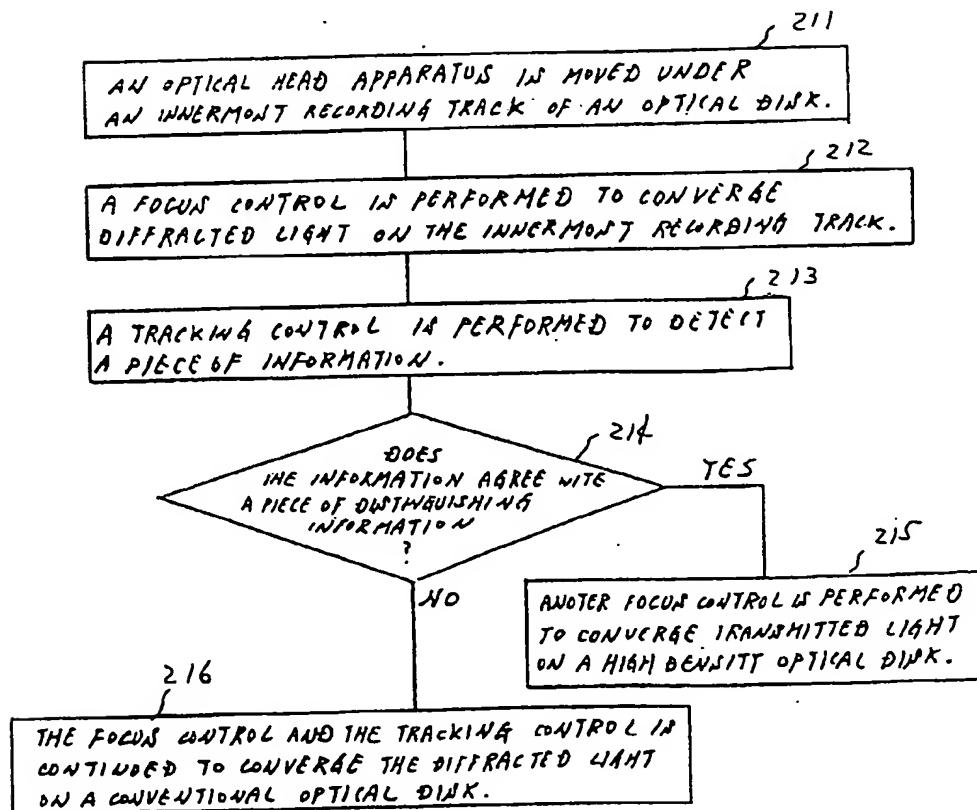 211
AN OPTICAL HEAD APPARATUS IS MOVED UNDER
AN INNERMOST RECORDING TRACK OF AN OPTICAL DISK.
212
A FOCUS CONTROL IS PERFORMED TO CONVERGE
DIFFRACTED LIGHT ON THE INNERMOST RECORDING TRACK.
213
A TRACKING CONTROL IS PERFORMED TO DETECT
A PIECE OF INFORMATION.
214
DOES
THE INFORMATION AGREE WITE
A PIECE OF DISTINGUISHING
INFORMATION
?
YES
NO
215
ANOTER FOCUS CONTROL IS PERFORMED
TO CONVERGE TRANSMITTED LIGHT
ON A HIGH DENSITT OPTICAL DISK.
216
THE FOCUS CONTROL AND THE TRACKING CONTROL IS
CONTINUED TO CONVERGE THE DIFFRACTED LIGHT
ON A CONVENTIONAL OPTICAL DISK.